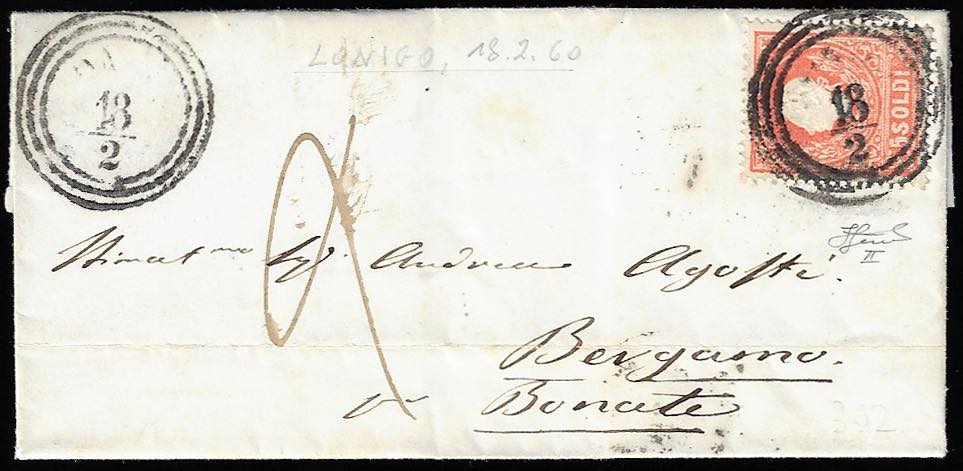 LONIGO, 18.2.60
18
2
5 SOLDI
18
2
Stimat.mo Sig.r Andrea Agosti
II
Bergamo.
Bonate
392